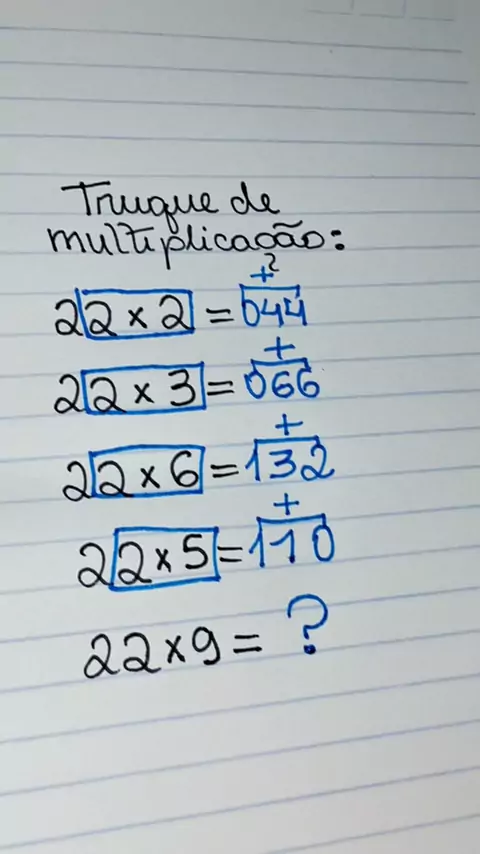 Truque de
multiplicação:
+2
22 x 2 = 044
+
22 x 3 = 066
+
22 x 6 = 132
+
22 x 5 = 110
22 x 9 = ?